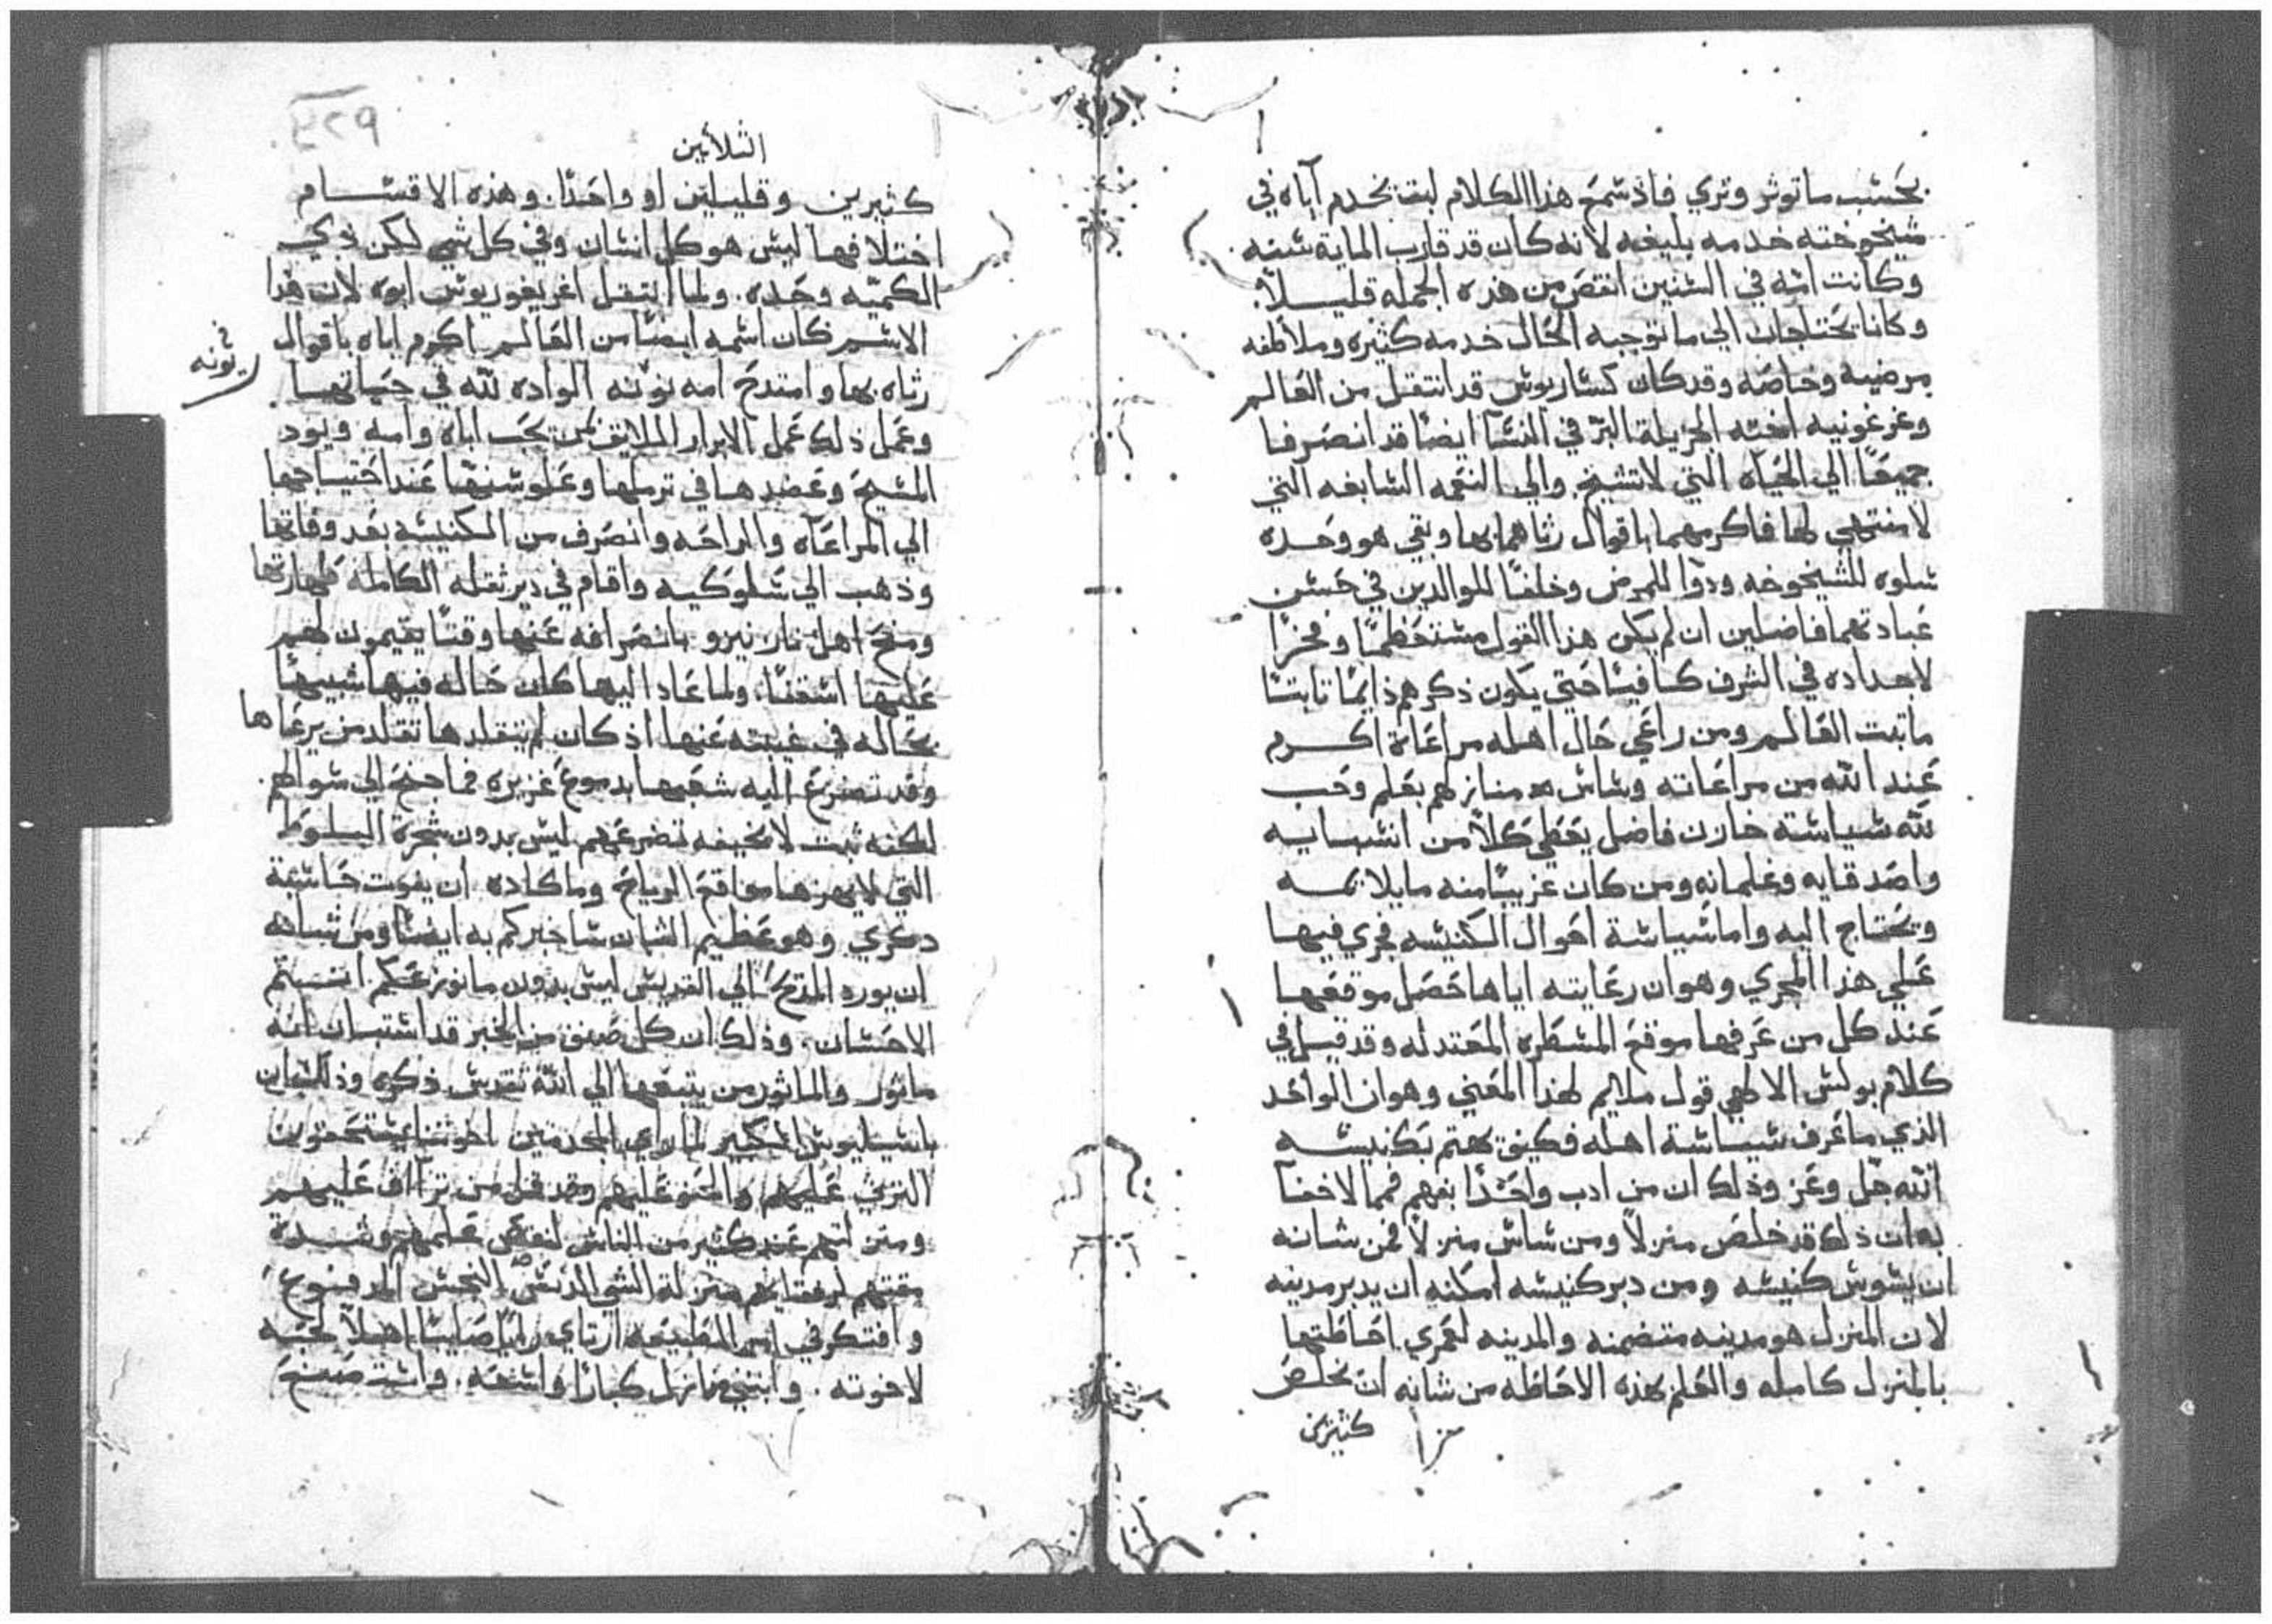 بحسب ما توثر وتري فاذ سمع هذا الكلام لبث يخدم آباه في
شيخوخته خدمه بليغه لانه كان قد قارب الماية سنه
وكانت امه في السنين انقص من هذه الجمله قليلاً
وكانا يحتاجان الي ما توجبه الحال خدمه كثيره وملاطفه
مرضيه وخاصه وقد كان كساريوس قد انتقل من العالم
وغرغونيه اخته الجزيلة البرّ في النسآ ايضًا قد انصرفا
جميعًا الي الحياه التي لا تشيخ والي النعمه السابغه التي
لا منتهي لها فاكرمهما باقوال رثاهما بها وبقي هو وحده
سلوه للشيخوخه ودوآ للمرض وخلفًا للوالدين في حسن
عبادتهما فاضلين ان لم يكن هذا القول مستعظمًا وفخرًا
لاجداده في الشرف كافيًا حتي يكون ذكرهم دايمًا ثابتًا
ما ثبت العالم ومن راعي حال اهله مراعاة اكرم
عند الله من مراعاته وساس منازلهم بعلم وحب
لله سياسة خازن فاضل يعطي كلاً من انسبايه
واصدقايه وغلمانه ومن كان غريبًا منه ما يلايمه
ويحتاج اليه واما سياسة احوال الكنيسه فجري فيها
علي هذا المجري وهو ان رعايته اياها حصل موقعها
عند كل من عرفها موقع المسطره المعتدله وقد قيل في
كلام بولس الالهي قول ملايم لهذا المعني وهو ان الواحد
الذي ما عرف سياسة اهله فكيف يهتم بكنيسه
الله جل وعز وذلك ان من ادب واحدًا بفهم فما لا خفآ
به ان ذلك قد خلص منزلاً ومن ساس منزلاً فمن شانه
ان يسوس كنيسه ومن دبر كنيسه امكنه ان يدبر مدينه
لان المنزل هو مدينه متضمنه والمدينه لعمري احاطتها
بالمنزل كامله والعلم بهذه الاحاطه من شانه ان يخلص
كثيرين
الثلاثين
كثيرين وقليلين او واحدًا. وهذه الاقسام
اختلافها ليس هو كل انسان وفي كل شي لكن في
الكميّه وحده. ولما انتقل اغريغوريوس ابوه لان هذا
الاسم كان اسمه ايضًا من العالم اكرم اباه باقوال
رثاه بها وامتدح امه نونه الواده لله في حياتها
نونه
وعمل ذلك عمل الابرار الملايق بمن يحب اباه وامه ويود
المسيح وعضدها في ترملها وعلو سنها عند احتياجها
الي المراعاه والراحه وانصرف من الكنيسه بعد وفاتها
وذهب الي سلوكيه واقام في دير ثقله الكامله طهارتها
ومنح اهل نازينزو بانصرافه عنها وقتًا يقيمون لهم
عليها اسقفًا. ولما عاد اليها كان حاله فيها شبيهًا
بحاله في غيبته عنها اذ كان لم يتقلدها تقلد من يرعاها
وقد تضرع اليه شعبها بدموع غزيره فما جنح الي سوالهم.
لكنه ثبت لا يحيفه تضرعهم ليس بدون شجرة البلوط
التي لا يهزها مواقع الرياح وما كاده ان يفوت
ذكري وهو عظيم الشان ساخبركم به ايضًا ومن شانه
ان يورد المدح الي القديس ليس بدون ما
الاحسان. وذلك ان كل صنف من الخير قد استبان انه
ماثور والماثور من يتبعها الي الله تقدس ذكره وذلك ان
باسيليوس الكبير لما راي المجذمين اخوتنا يستحقون
الترثي عليهم والحنو عليهم وقد قل من يتراف عليهم
ومن كثير من الناس لنقص علمهم وشدة
مقتهم لرفقايهم منزلة الشي الدنس النجس المرفوض
وافتكر في اسم الطبيعه ارتاي رايًا صايبًا اهلاً لمحبته
لاخوته. وابتني منازل كبارًا واسعه. واستصنع